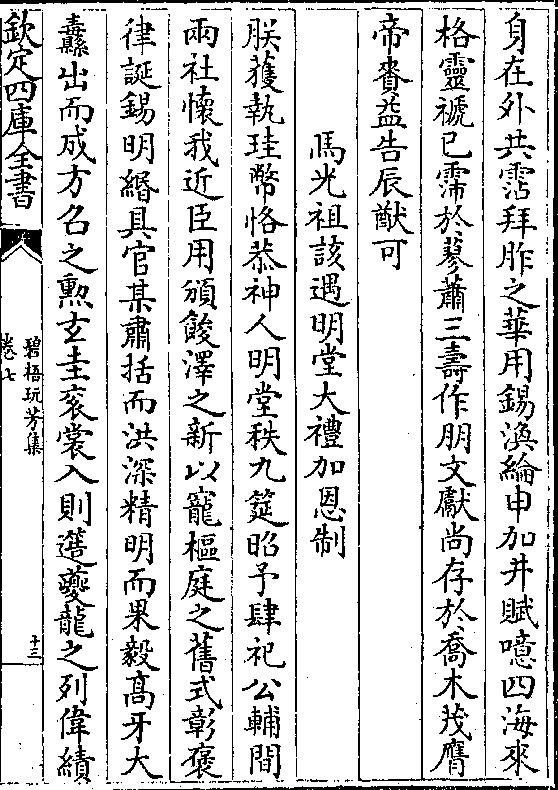 身在外共霑拜胙之華用錫渙綸申加井賦噫四海來
格靈禠已霈於蓼蕭三壽作朋文獻尚存於喬木茂膺
帝賚益告辰猷可
馬光祖該遇明堂大禮加恩制
朕蒦執珪幣恪恭神人明堂秩九筵昭予肆祀公輔間
兩社懷我近臣用頒餕澤之新以寵樞庭之舊式彰褒
律誕錫明緡具官某肅括而洪深精明而果毅高牙大
纛出而成方召之勲玄圭衮裳入則選夔龍之列偉績
欽定四庫全書
碧梧玩芳集
卷七
十三